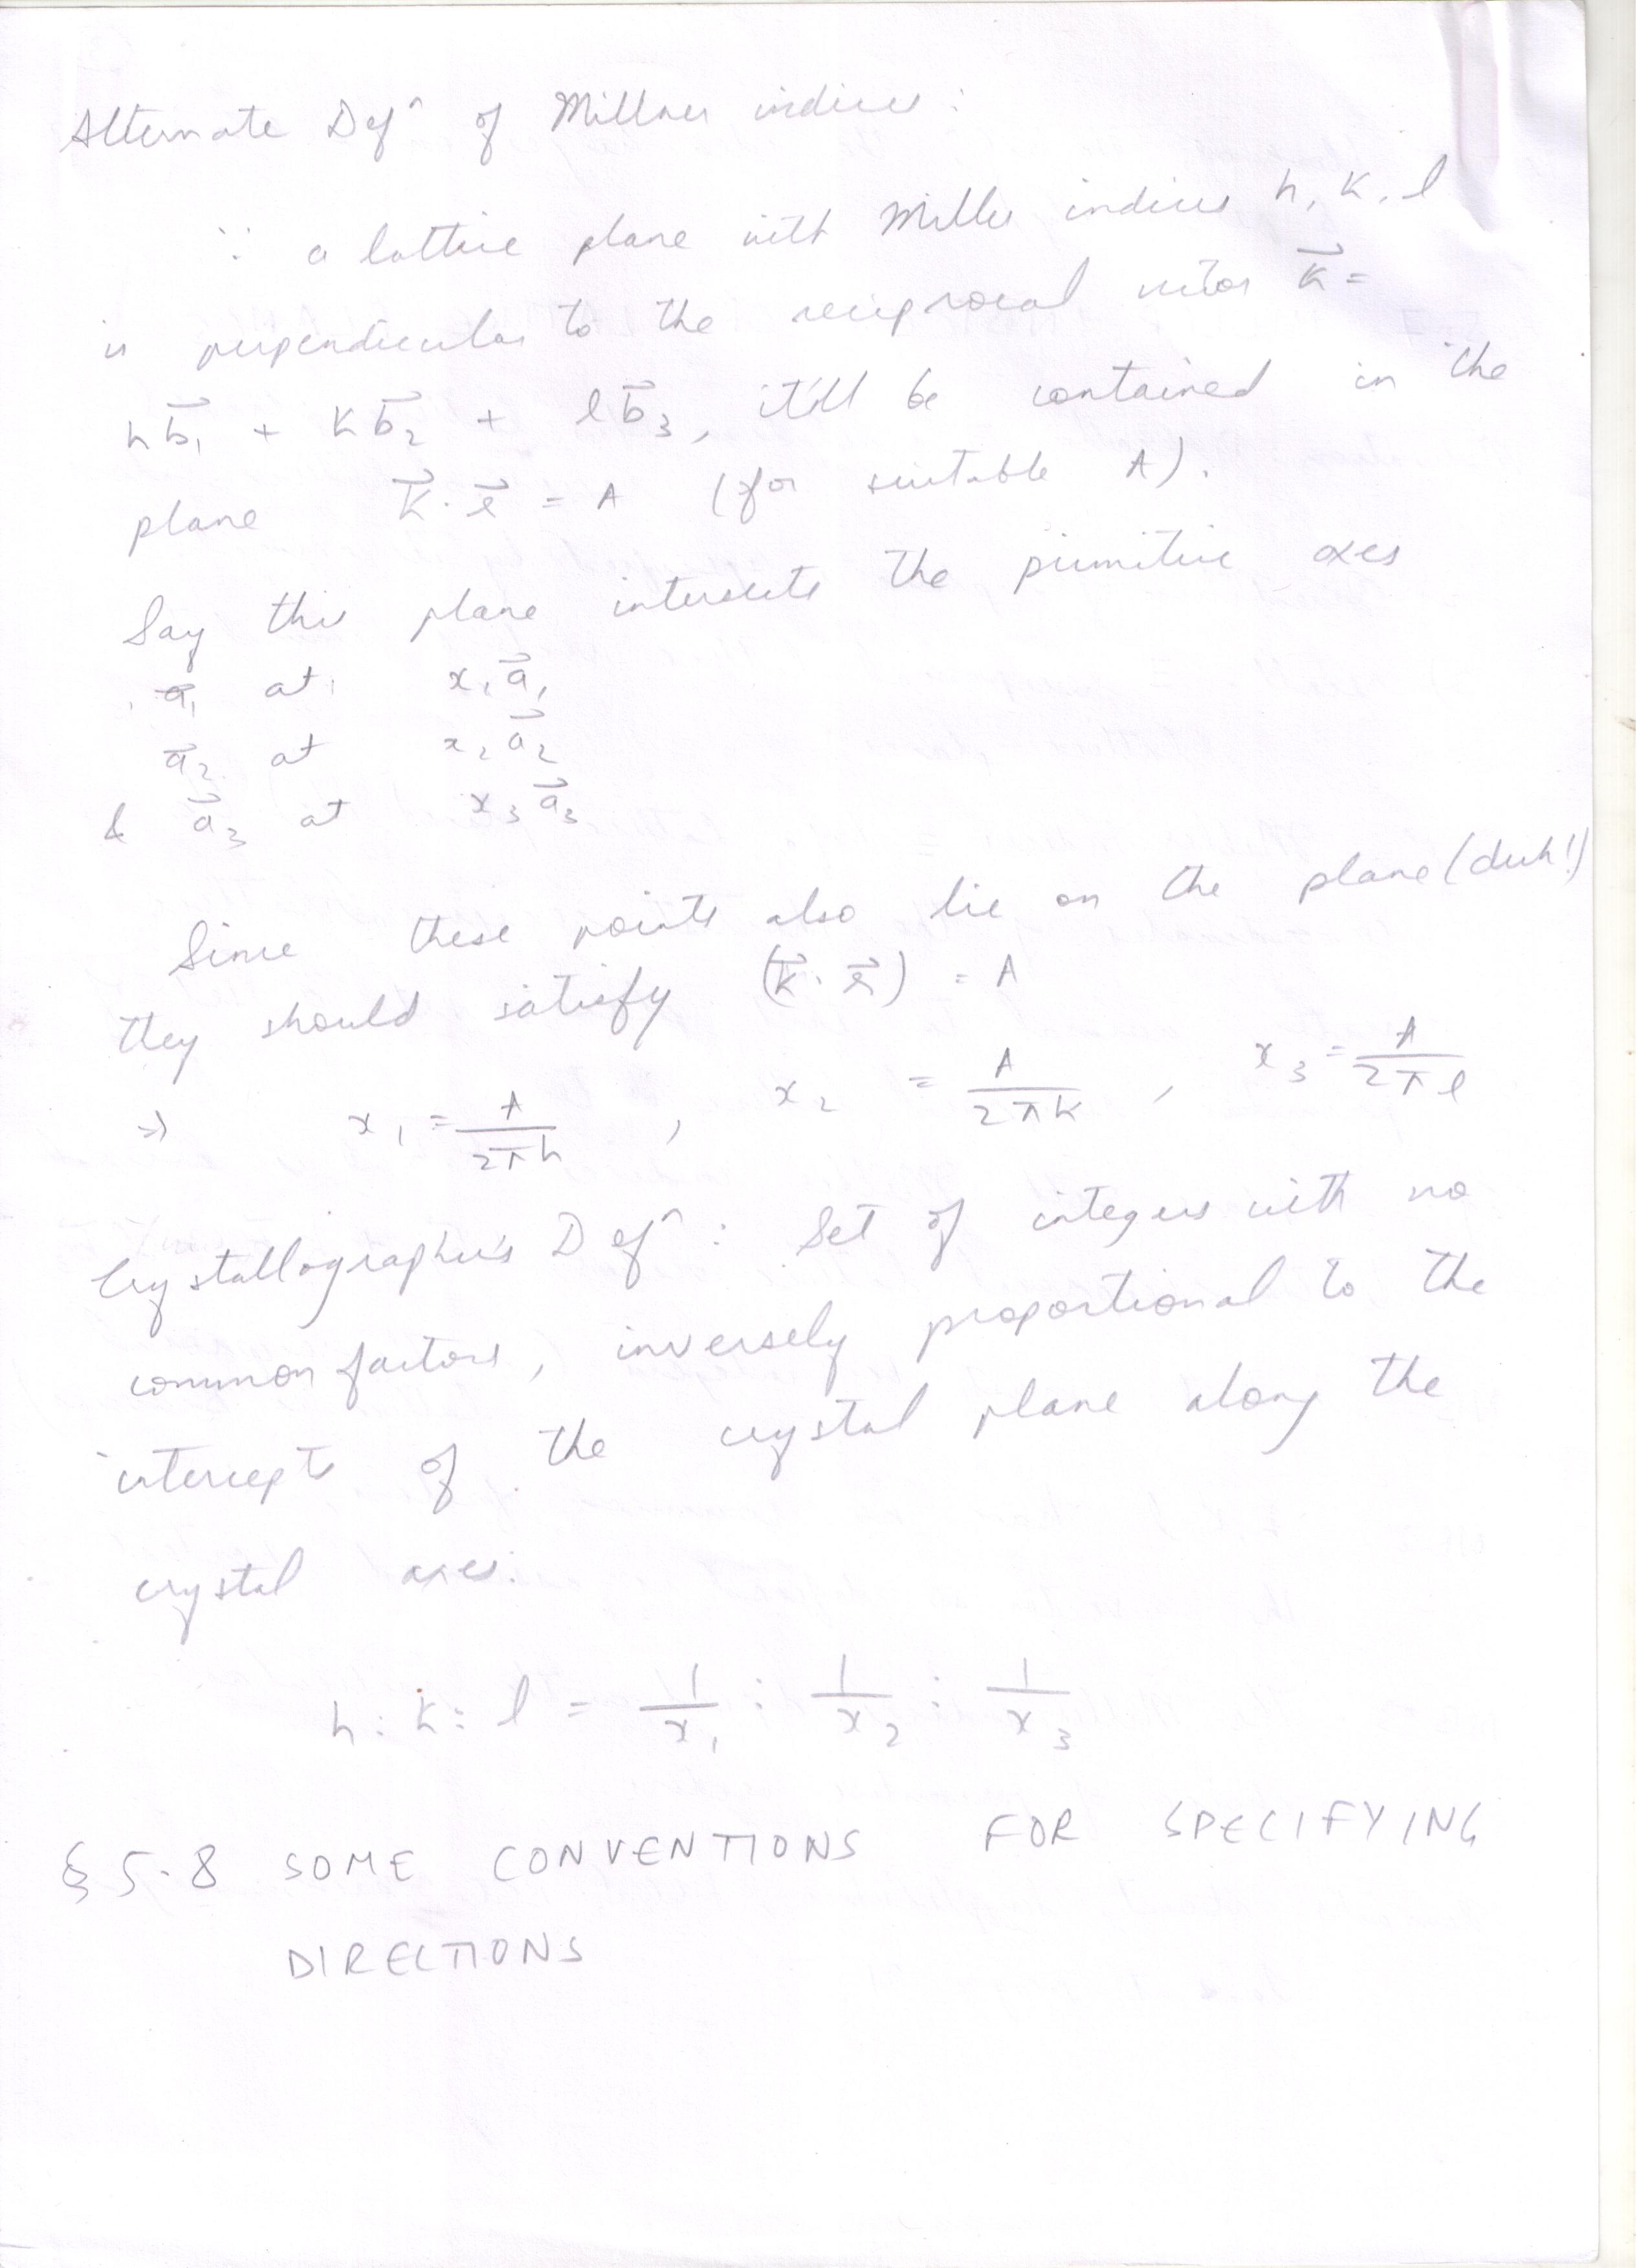 Alternate Defⁿ of Millner indices:
∵ a lattice plane with Miller indices h, k, l
is perpendicular to the reciprocal vector K⃗ =
h b⃗₁ + k b⃗₂ + l b⃗₃, it'll be contained in the
plane K⃗ · r⃗ = A (for suitable A).
Say this plane intersects the primitive axes
a⃗₁ at x₁ a⃗₁
a⃗₂ at x₂ a⃗₂
& a⃗₃ at x₃ a⃗₃
Since these points also lie on the plane (duh!)
they should satisfy (K⃗ · r⃗) = A
⇒ x₁ = A/2πh , x₂ = A/2πk , x₃ = A/2πl
Crystallographer's Defⁿ : Set of integers with no
common factors, inversely proportional to the
intercepts of the crystal plane along the
crystal axes:
h : k : l = 1/x₁ : 1/x₂ : 1/x₃
§ 5.8 SOME CONVENTIONS FOR SPECIFYING
DIRECTIONS